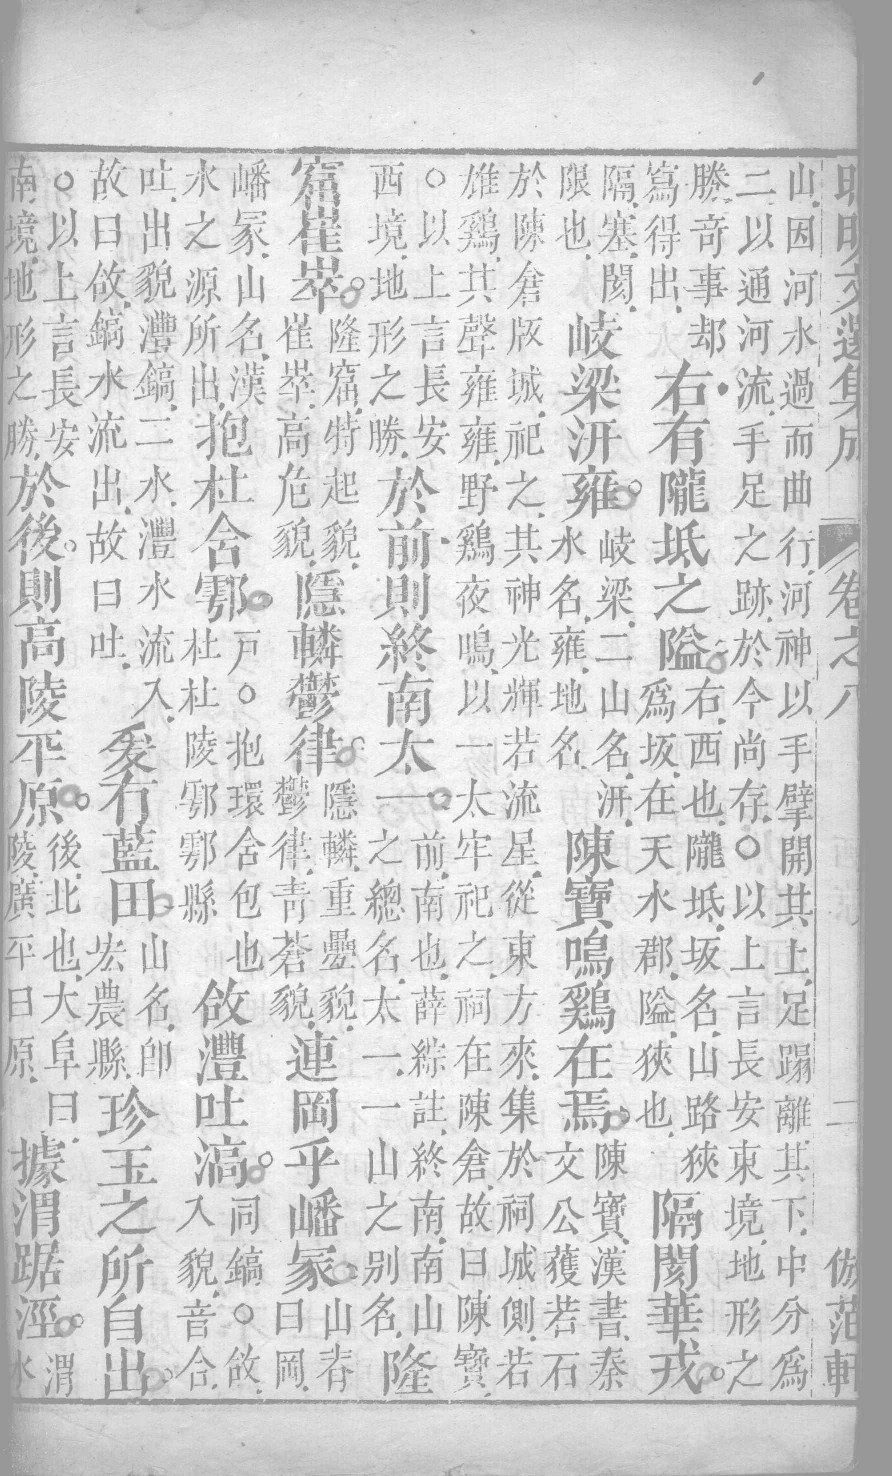 昭明文選集成　卷之八　二　倣范軒
山因河水過而曲行河神以手擘開其上足蹋離其下中分爲
二以通河流手足之跡於今尚存○以上言長安東境地形之
勝奇事却
寫得出
右有隴坻之隘
右西也隴坻坂名山路狹
爲坂在天水郡隘狹也
隔閡華戎
隔塞閡
限也
岐梁汧雍
岐梁二山名汧
水名雍地名
陳寶鳴鷄在焉
陳寶漢書秦
文公獲若石
於陳倉阪城祀之其神光輝若流星從東方來集於祠城側若
雄鷄其聲雍雍野鷄夜鳴以一太牢祀之祠在陳倉故曰陳寶
○以上言長安
西境地形之勝
於前則終南太一
前南也薛綜註終南南山
之總名太一一山之别名
隆
窟崔崒
隆窟特起貌
崔崒高危貌
隱轔鬱律
隱轔重疊貌
鬱律青蒼貌
連岡乎嶓冢
山脊
曰岡
嶓冢山名漢
水之源所出
抱杜含鄠
戸○抱環含包也
杜杜陵鄠鄠縣
欱灃吐滈
同鎬○欱
入貌音合
吐出貌灃鎬二水灃水流入
故曰欱鎬水流出故曰吐
爰有藍田
山名卽
宏農縣
珍玉之所自出
○以上言長安
南境地形之勝
於後則高陵平原
後北也大阜曰
陵廣平曰原
據渭踞涇
渭
水